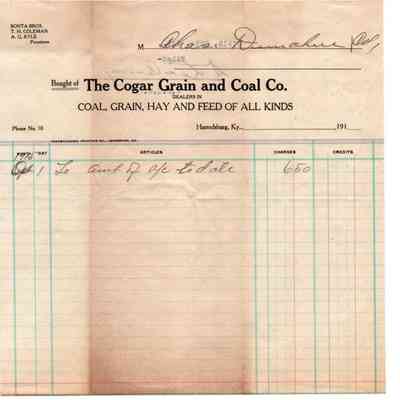 BONTA BROS.
T. H. COLEMAN
A. G. KYLE
M Chas. Col,
Bought of The Cogar Grain and Coal Co.
DEALERS IN
COAL, GRAIN, HAY AND FEED OF ALL KINDS
Phone No. 10 Harrodsburg, Ky., 191
ARTICLES CHARGES CREDITS
1 To amt of a/c to date 650